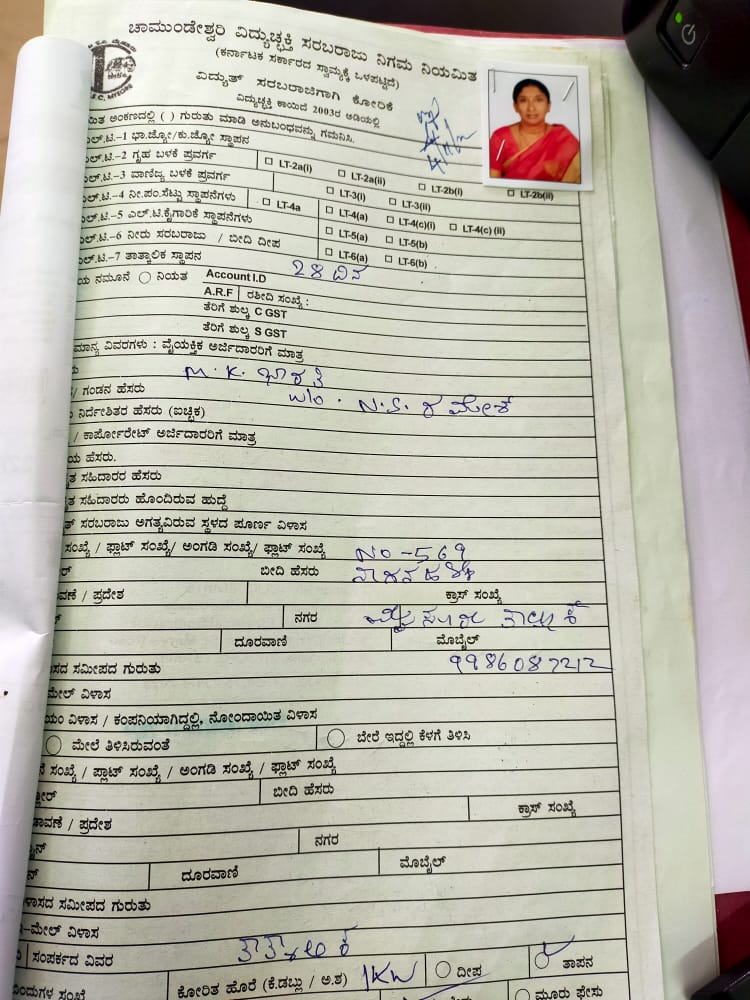 ಚಾಮುಂಡೇಶ್ವರಿ ವಿದ್ಯುಚ್ಛಕ್ತಿ ಸರಬರಾಜು ನಿಗಮ ನಿಯಮಿತ
(ಕರ್ನಾಟಕ ಸರ್ಕಾರದ ಸ್ವಾಮ್ಯಕ್ಕೆ ಒಳಪಟ್ಟಿದೆ)
ವಿದ್ಯುತ್ ಸರಬರಾಜಿಗಾಗಿ ಕೋರಿಕೆ
ವಿದ್ಯುಚ್ಛಕ್ತಿ ಕಾಯಿದೆ 2003ರ ಅಡಿಯಲ್ಲಿ
ಅಂಕಣದಲ್ಲಿ ( ) ಗುರುತು ಮಾಡಿ ಅನುಬಂಧವನ್ನು ಗಮನಿಸಿ.
ಎಲ್.ಟಿ.-1 ಭಾ.ಜ್ಯೋ/ಕು.ಜ್ಯೋ ಸ್ಥಾಪನ
ಎಲ್.ಟಿ.-2 ಗೃಹ ಬಳಕೆ ಪ್ರವರ್ಗ LT-2a(i) LT-2a(ii) LT-2b(i) LT-2b(ii)
ಎಲ್.ಟಿ.-3 ವಾಣಿಜ್ಯ ಬಳಕೆ ಪ್ರವರ್ಗ LT-3(i) LT-3(ii)
ಎಲ್.ಟಿ.-4 ನೀ.ಪಂ.ಸೆಟ್ಟು ಸ್ಥಾಪನೆಗಳು LT-4a LT-4(a) LT-4(c)(i) LT-4(c) (ii)
ಎಲ್.ಟಿ.-5 ಎಲ್.ಟಿ.ಕೈಗಾರಿಕೆ ಸ್ಥಾಪನೆಗಳು LT-5(a) LT-5(b)
ಎಲ್.ಟಿ.-6 ನೀರು ಸರಬರಾಜು / ಬೀದಿ ದೀಪ LT-6(a) LT-6(b)
ಎಲ್.ಟಿ.-7 ತಾತ್ಕಾಲಿಕ ಸ್ಥಾಪನ 28 ದಿನ
ನಮೂನೆ ನಿಯತ Account I.D
A.R.F ರಶೀದಿ ಸಂಖ್ಯೆ :
ತೆರಿಗೆ ಶುಲ್ಕ C GST
ತೆರಿಗೆ ಶುಲ್ಕ S GST
ವಿವರಗಳು : ವೈಯಕ್ತಿಕ ಅರ್ಜಿದಾರರಿಗೆ ಮಾತ್ರ
M.K. ಭಾರತಿ
/ ಗಂಡನ ಹೆಸರು w/o. N.S. ರಮೇಶ
ನಿರ್ದೇಶಿತರ ಹೆಸರು (ಐಚ್ಛಿಕ)
/ ಕಾರ್ಪೋರೇಟ್ ಅರ್ಜಿದಾರರಿಗೆ ಮಾತ್ರ
ಹೆಸರು.
ಸಹಿದಾರರ ಹೆಸರು
ಸಹಿದಾರರು ಹೊಂದಿರುವ ಹುದ್ದೆ
ಸರಬರಾಜು ಅಗತ್ಯವಿರುವ ಸ್ಥಳದ ಪೂರ್ಣ ವಿಳಾಸ
ಸಂಖ್ಯೆ / ಫ್ಲಾಟ್ ಸಂಖ್ಯೆ/ ಅಂಗಡಿ ಸಂಖ್ಯೆ/ ಫ್ಲಾಟ್ ಸಂಖ್ಯೆ NO-569
ಬೀದಿ ಹೆಸರು ನಾಗನಹಳ್ಳಿ
/ ಪ್ರದೇಶ ಕ್ರಾಸ್ ಸಂಖ್ಯೆ
ನಗರ ಮೈಸೂರು ತಾಲ್ಲೂಕ್
ದೂರವಾಣಿ ಮೊಬೈಲ್
ಸಮೀಪದ ಗುರುತು 9986087212
ಮೇಲ್ ವಿಳಾಸ
ವಿಳಾಸ / ಕಂಪನಿಯಾಗಿದ್ದಲ್ಲಿ, ನೋಂದಾಯಿತ ವಿಳಾಸ
ಮೇಲೆ ತಿಳಿಸಿರುವಂತೆ ಬೇರೆ ಇದ್ದಲ್ಲಿ ಕೆಳಗೆ ತಿಳಿಸಿ
ಸಂಖ್ಯೆ / ಫ್ಲಾಟ್ ಸಂಖ್ಯೆ / ಅಂಗಡಿ ಸಂಖ್ಯೆ / ಫ್ಲಾಟ್ ಸಂಖ್ಯೆ
ಬೀದಿ ಹೆಸರು
/ ಪ್ರದೇಶ ಕ್ರಾಸ್ ಸಂಖ್ಯೆ
ನಗರ
ದೂರವಾಣಿ ಮೊಬೈಲ್
ಸಮೀಪದ ಗುರುತು
ಮೇಲ್ ವಿಳಾಸ
ಸಂಪರ್ಕದ ವಿವರ ತಾತ್ಕಾಲಿಕ
ಕೋರಿತ ಹೊರೆ (ಕೆ.ಡಬ್ಲು / ಅ.ಶ) 1KW ದೀಪ ತಾಪನ
ಮೂರು ಫೇಸು